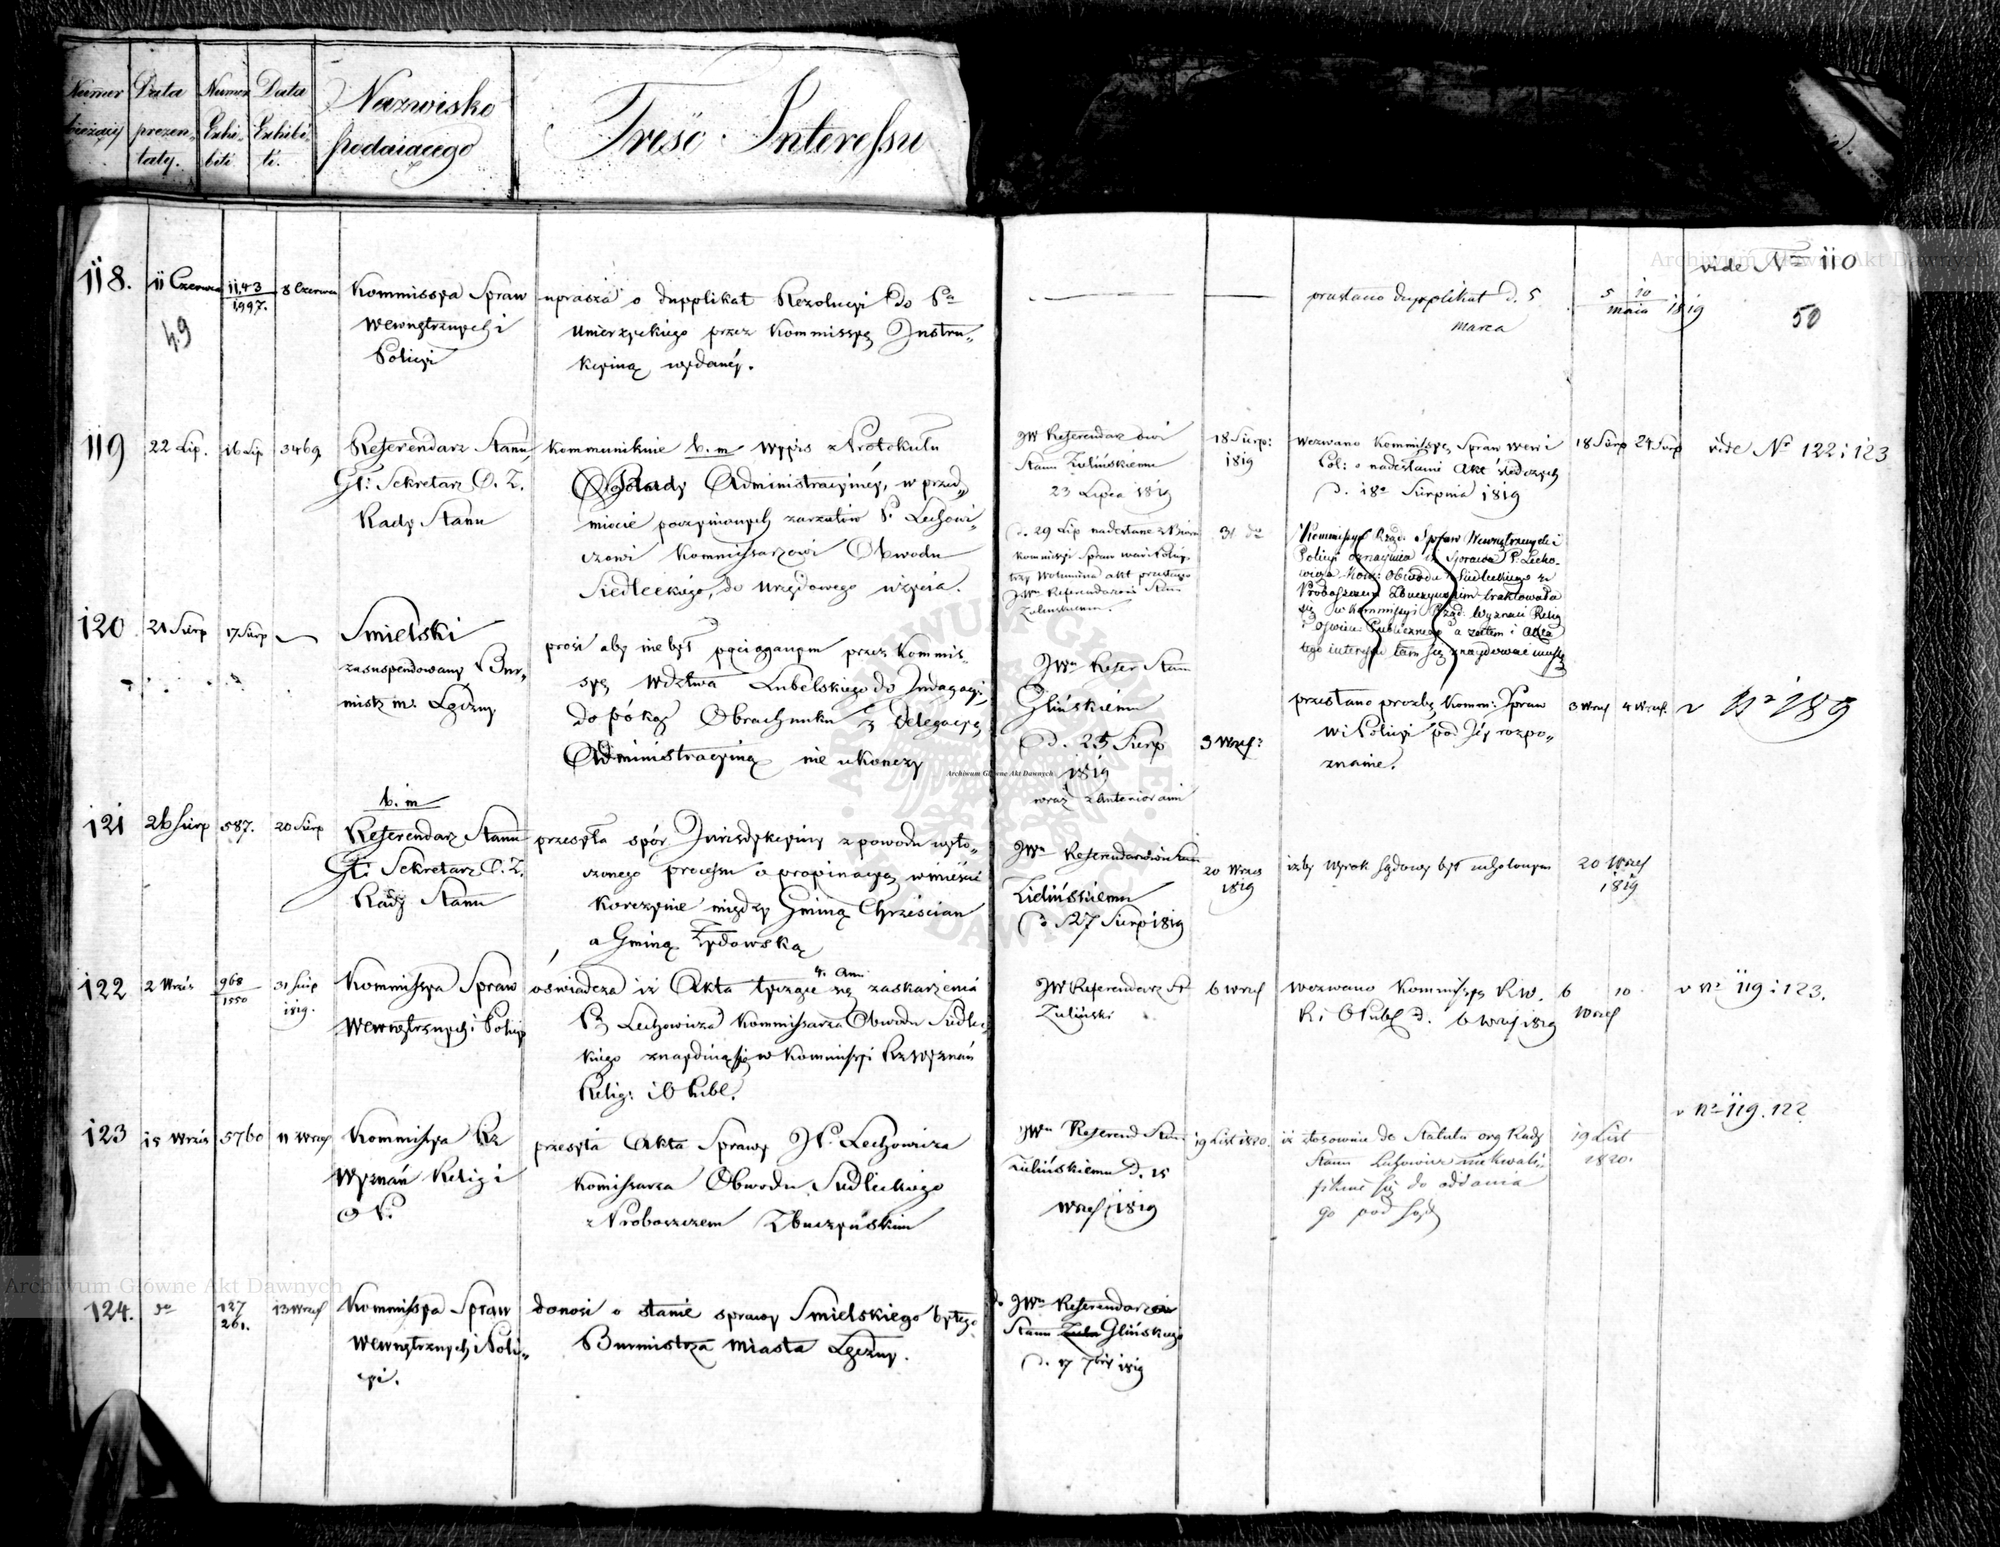 Numer bieżący
Data prezen-taty.
Numer Exhi-biti
Data Exhibi-ti.
Nazwisko podaiącego
Treść Interessu
118.
11 Czerwca
1143/1997.
8 Czerwca
Kommissya Spraw
Wewnętrznych i
Policyi
uprasza o dupplikat Rezolucyi do Pa
Umierzyckiego przez Kommissyę Instru„
kcyiną wydanéy.
przesłano dupplikat d. 5
marca
5 10
maia 1819
vide No 110
49
50
119
22 Lip.
16 Lip
3469
Referendarz Stanu
Gł: Sekretarz O. Z.
Rady Stanu
kommunikuie b. m wypis z Protokułu
Ogó Rady Administracyinéy, w przed„
miocie poczynionych zarzutów P. Lechowi„
czowi Kommissarzowi Obwodu
Siedleckiego, do urzędowego użycia.
JW Referendarzowi
Stanu Zielińskiemu
23 Lipca 1819
d. 29 Lip nadesłane z Biura
Kommissyi Spraw
trzy Volumina akt
JWu Referendarzowi Stanu
Zielińskiemu.
18 Sierp:
1819
31 do
Wezwano Kommissyę Spraw Wew i
Pol: o nadesłanie Akt śledczych
d. 18o Sierpnia 1819
Kommissya Rząd. Spraw Wewnętrznych i
Policyi oznaymia iż Sprawa P. Lecho-
wicza Kom: Obwodu Siedleckiego z
Proboszczem Zbuczyńskim traktowała
się w Kommissyi Rząd. Wyznań Relig
i Oświec: Publicznego a zatem i Akta
tego interessu tam się znaydować muszą
18 Sierp 24 Sierp
vide Nr 122 i 123
120
21 Sierp
17 Sierp
Smielski
zasuspendowany Bur„
mistrz m: Łęczny
prosi aby nie był pociąganym przez Kommis„
syę Wdztwa Lubelskiego do Indagacyi,
do póką Obrachunku z Delegacyą
Administracyiną nie ukończy
JWu Refer Stanu
Glińskiemu
d. 25 Sierp
1819
wraz z anteriorami
3 Wrześ:
przesłano prozbę Komm: Spraw
W i Policyi pod Jéy rozpo„
znanie.
3 Wrześ 4 Wrześ.
v No 189
121
26 Sierp
587.
20 Sierp
b. m
Referendarz Stanu
Gł: Sekretarz O. Z.
Rady Stanu
przesyła spór Jurisdykcyiny z powodu wyto„
czonego processu o propinacyą w mieście
Korczynie między Gminą Chrześcian
a Gminą Żydowską
JWu Referendarzowi Stanu
Zielińskiemu
d 27 Sierp 1819
20 Wrześ
1819
iżby Wyrok Sądowy był uchylonym
20 Wrześ
1819
122
2 Wrześ
968/1550
31 Sierp
1819.
Kommissya Spraw
Wewnętrznych i Policyi
oświadcza iż Akta tyczące się zaskarżenia
P. Lechowicza Kommissarza Obwodu Siedlec
kiego znayduią się w Kommissyi Rz Wyznań
Relig: i O Publ.
JW Referendarz St
Zieliński
6 Wrześ
Wezwano Kommissyą R W.
R. i O Publ d. 6 Wrześ 1819
6 10
Wrześ
v No 119 i 123.
123
15 Wrześ
5760
11 Wrześ
Kommissya Rz
Wyznań Relig i
O P.
przesyła Akta Sprawy JP. Lechowicza
Komissarza Obwodu Siedleckiego
z Proboszczem Zbuczyńskim
JWu Referend Stanu
Zielińskiemu d. 15
Wrześ 1819
19 List 1820.
iż stosownie do Statutu org Rady
Stanu Lechowicz niekwali„
fikuie się do oddania
go pod Sąd
19 List
1820.
v No 119. 122
124.
do
127
261.
13 Wrześ
Kommissya Spraw
Wewnętrznych i Poli„
cyi.
donosi o stanie sprawy Smielskiego byłego
Burmistrza Miasta Łęczny.
do JWu Referendarza
Stanu Glińskiego
d. 17 7bris 1819
Archiwum Główne Akt Dawnych
Archiwum Główne Akt Dawnych
Archiwum Główne Akt Dawnych
ARCHIWUM GŁÓWNE AKT DAWNYCH